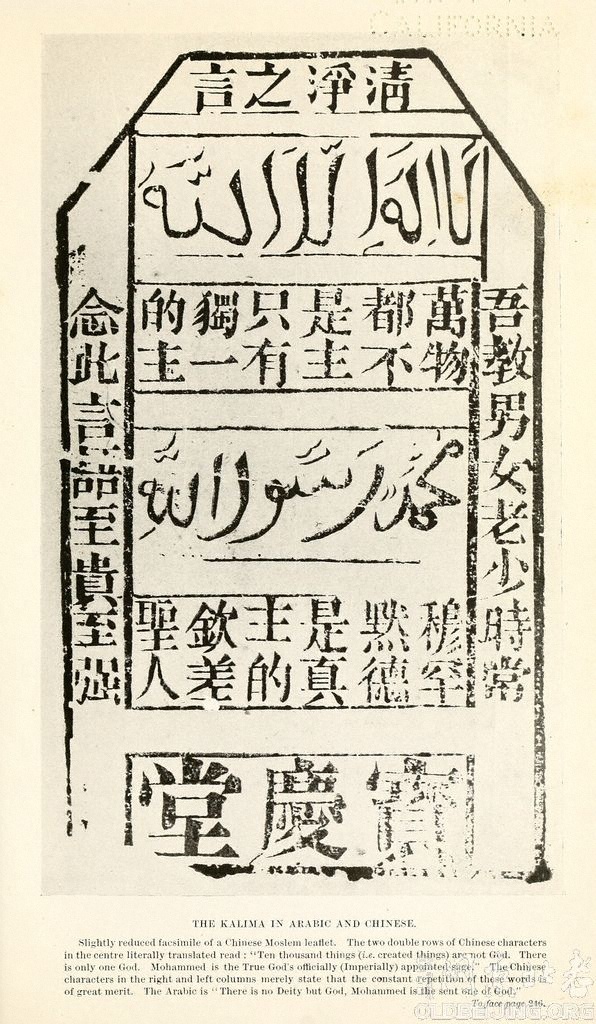 CALIFORNIA
清淨之言
لا اله الا الله
吾教男女老少時常
萬物
都不
是主
只有
獨一
的主
محمد رسول الله
穆罕
黙德
是真
主的
欽差
聖人
念此言語至貴至强
寶慶堂
THE KALIMA IN ARABIC AND CHINESE.
Slightly reduced facsimile of a Chinese Moslem leaflet. The two double rows of Chinese characters
in the centre literally translated read : “Ten thousand things (i.e. created things) are not God. There
is only one God. Mohammed is the True God's officially (Imperially) appointed sage.” The Chinese
characters in the right and left columns merely state that the constant repetition of these words is
of great merit. The Arabic is “There is no Deity but God, Mohammed is the sent one of God.”
To face page 246.
OLDBEIJING.ORG